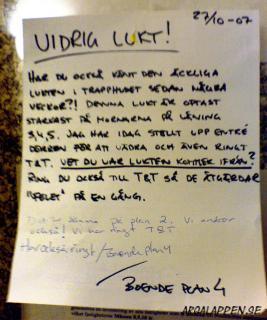 27/10-07
VIDRIG LUKT!
HAR DU OCKSÅ KÄNT DEN ÄCKLIGA
LUKTEN I TRAPPHUSET SEDAN NÅGRA
VECKOR?! DENNA LUKT ÄR OFTAST
STARKAST PÅ MORNARNA PÅ VÅNING
3,4,5. JAG HAR IDAG STÄLLT UPP ENTRÉ
DÖRREN FÖR ATT VÄDRA OCH ÄVEN RINGT
T&T. VET DU VAR LUKTEN KOMMER IFRÅN?
RING DU OCKSÅ TILL T&T SÅ DE ÅTGÄRDAR
"FELET" PÅ EN GÅNG.
Det är samma på plan 2. Vi undrar
också! Vi har ringt T&T
Har också ringt / Boende plan 4
/ BOENDE PLAN 4
ARGALAPPEN.SE